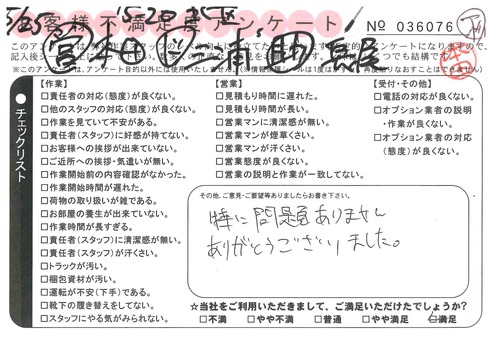 5/25
15-20
お客様不満足度アンケート
No 036076
【作業】
□責任者の対応(態度)が良くない。
□他のスタッフの対応(態度)が良くない。
□作業を見ていて不安がある。
□責任者(スタッフ)に好感が持てない。
□お客様への挨拶が出来ていない。
□ご近所への挨拶・気遣いが無い。
□作業開始前の内容確認がなかった。
□作業開始時間が遅れた。
□荷物の取り扱いが雑である。
□お部屋の養生が出来ていない。
□作業時間が長すぎる。
□責任者(スタッフ)に清潔感が無い。
□責任者(スタッフ)が汗くさい。
□トラックが汚い。
□梱包資材が汚い。
□運転が不安(下手)である。
□靴下の履き替えをしてない。
□スタッフにやる気がみられない。
【営業】
□見積もり時間に遅れた。
□見積もり時間が長い。
□営業マンに清潔感が無い。
□営業マンが煙草くさい。
□営業マンが汗くさい。
□営業態度が良くない。
□営業の説明と作業が一致してない。
【受付・その他】
□電話の対応が良くない。
□オプション業者の説明
・作業が良くない。
□オプション業者の対応
(態度)が良くない。
チェックリスト
その他、ご意見・ご要望等ありましたらお書き下さい。
特に問題ありません
ありがとうございました。
☆当社をご利用いただきまして、ご満足いただけたでしょうか?
□不満 □やや不満 □普通 □やや満足 □満足